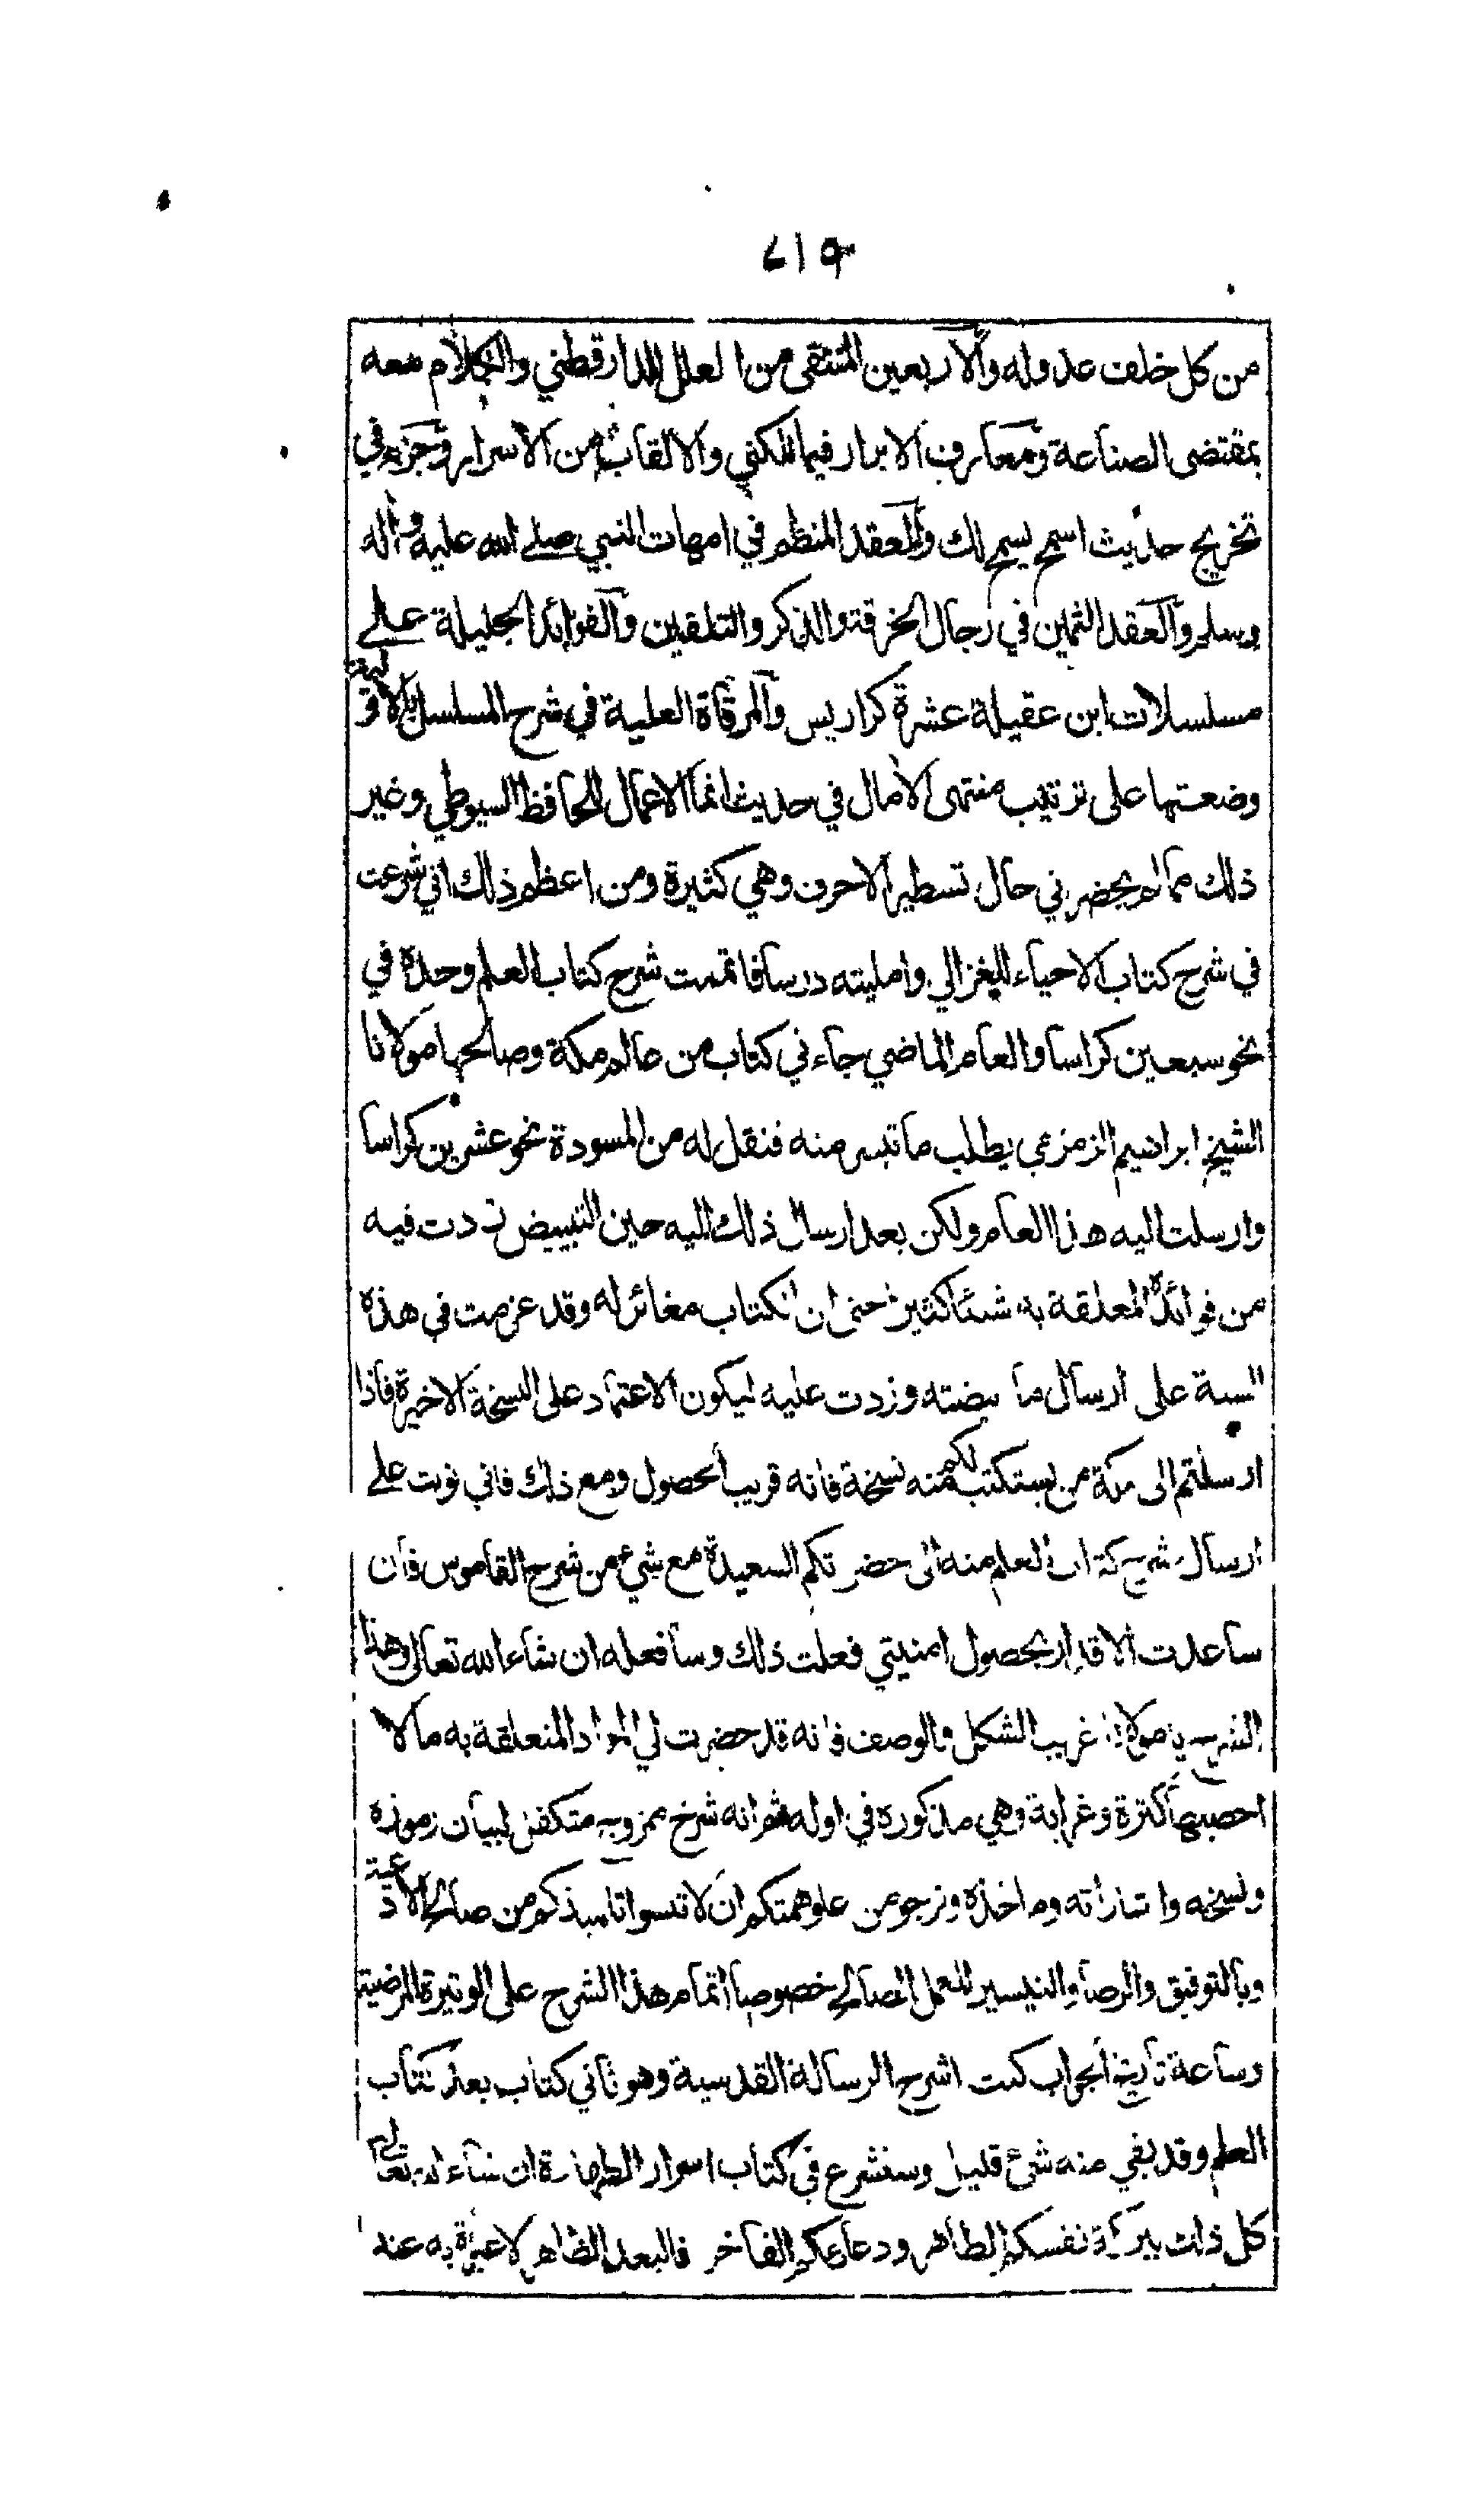 ٧١٩
من كل خلف عدوله والاربعين المنتقى من العلل للدارقطني والكلام معه
بمقتضى الصناعة ومعارف الابرار فيما للكنى والالقاب من الاسرار وجزء في
تخريج حديث اسمح يسمح لك والعقد المنظم في امهات النبي صلے الله عليه وآله
وسلم والعقد الثمين في رجال الخرقة والذكر والتلقين والفوائد الجليلة علے
مسلسلات ابن عقيلة عشرة كراريس والمرقاة العلية في شرح المسلسل بالاولية
وضعتها على ترتيب منتهى الآمال في حديث انما الاعمال للحافظ السيوطي وغير
ذلك مما لم يحضرني حال تسطير الاحرف وهي كثيرة ومن اعظم ذلك اني شرعت
في شرح كتاب الاحياء للغزالي وامليته درسا فاتممت شرح كتاب العلم وحده في
نحو سبعين كراسا والعام الماضي جاءني كتاب من عالم مكة وصالحها مولانا
الشيخ ابراهيم الزمزمي يطلب ما تيسر منه فنقل له من المسودة نحو عشرين كراسا
وارسلت اليه هذا العام ولكن بعد ارسال ذلك اليه حين التبييض زدت فيه
من فوائده المعلقة به شيئا كثيرا حتى ان الكتاب مغائر له وقد عزمت في هذه
السنة على ارسال ما بيضته وزدت عليه ليكون الاعتماد على النسخة الاخيرة فاذا
ارسلتم الى مكة من يستكتب لكم منه نسخة فانه قريب الحصول ومع ذلك فاني نويت علے
ارسال شرح كتاب العلم منه الى حضرتكم السعيدة مع شيء من شرح القاموس فان
ساعدت الاقدار بحصول امنيتي فعلت ذلك وسافعله ان شاء الله تعالى وهذا
الشرح يا مولانا غريب الشكل والوصف فانه قد حضرت لي المواد المتعلقة به ما لا
احصيها كثرة وغرابة وهي مذكوره في اوله ثم انه شرح ممزوج متكفل لبيان رموزه
ونسخه واشاراته ومآخذه ونرجو من علو همتكم ان لا تنسوا تلميذكم من صالح الادعية
وبالتوفيق والرضا والتيسير للعمل الصالح خصوصا اتمام هذا الشرح على الوتيرة المرضية
وساعة تاريخ الجواب كنت اشرح الرسالة القدسية وهو ثاني كتاب بعد كتاب
العلم وقد بقي منه شئ قليل وسنشرع في كتاب اسرار الطهارة ان شاء الله تعالى
كل ذلك ببركة نفسكم الطاهر ودعائكم الفاخر فالبعد الظاهر لا عبرة به عند